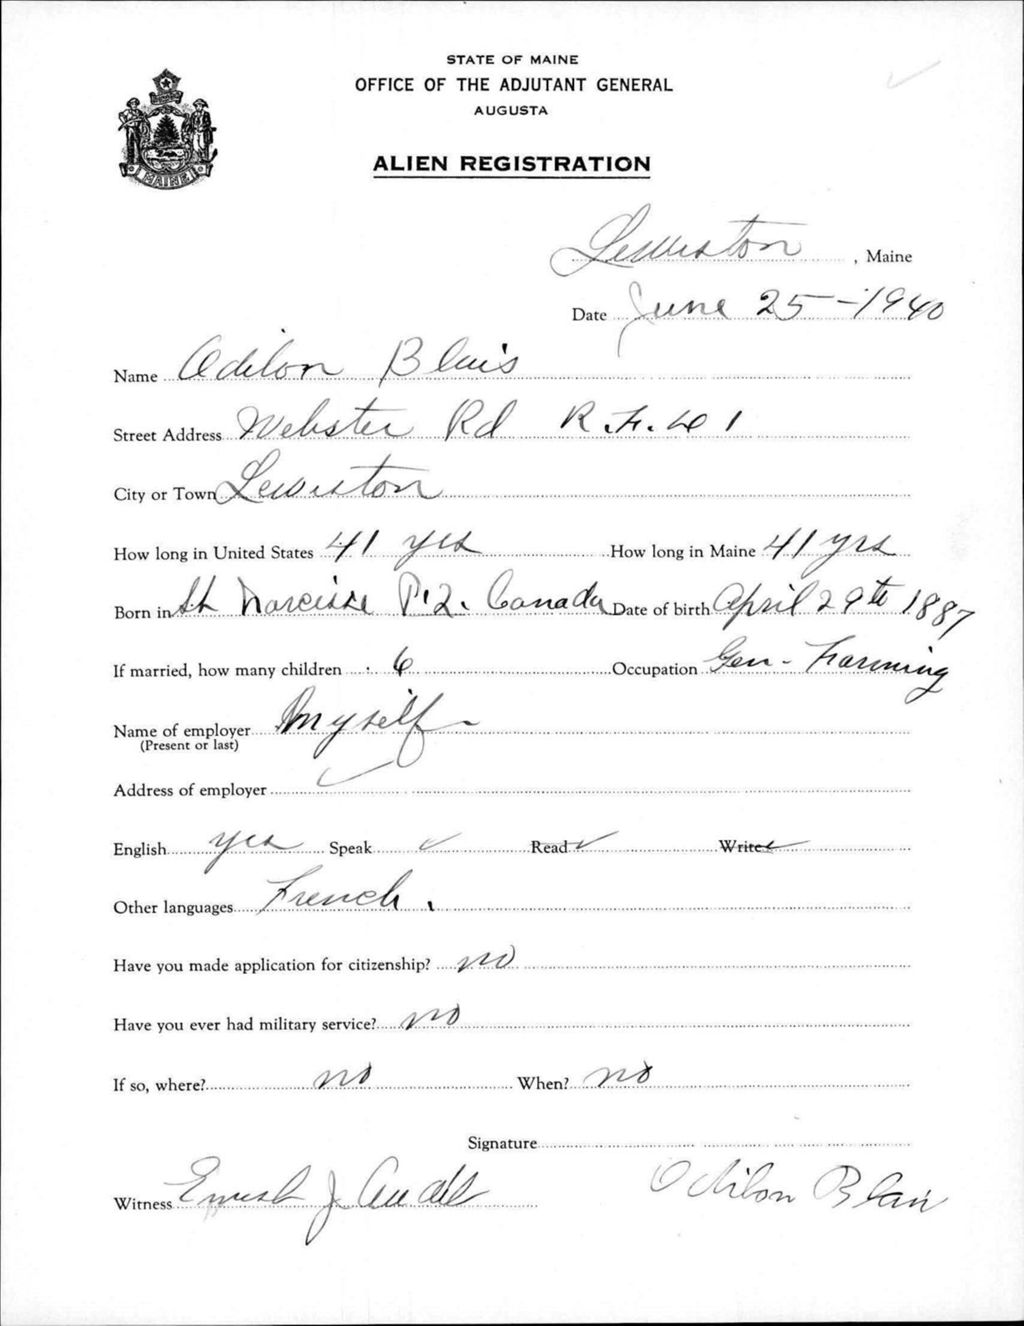 STATE OF MAINE
OFFICE OF THE ADJUTANT GENERAL
AUGUSTA
MAINE
ALIEN REGISTRATION
Lewiston, Maine
Date June 25-1940
Name Odilon Blais
Street Address Webster Rd R.F.D 1
City or Town Lewiston
How long in United States 41 yrs How long in Maine 41 yrs
Born in St Narcisse P.Q. Canada Date of birth April 29th 1887
If married, how many children 6 Occupation Gen-Farming
Name of employer Myself
(Present or last)
Address of employer ✓
English yes Speak ✓ Read ✓ Write ✓
Other languages French.
Have you made application for citizenship? no
Have you ever had military service? no
If so, where? no When? no
Signature
Witness J Odilon Blais